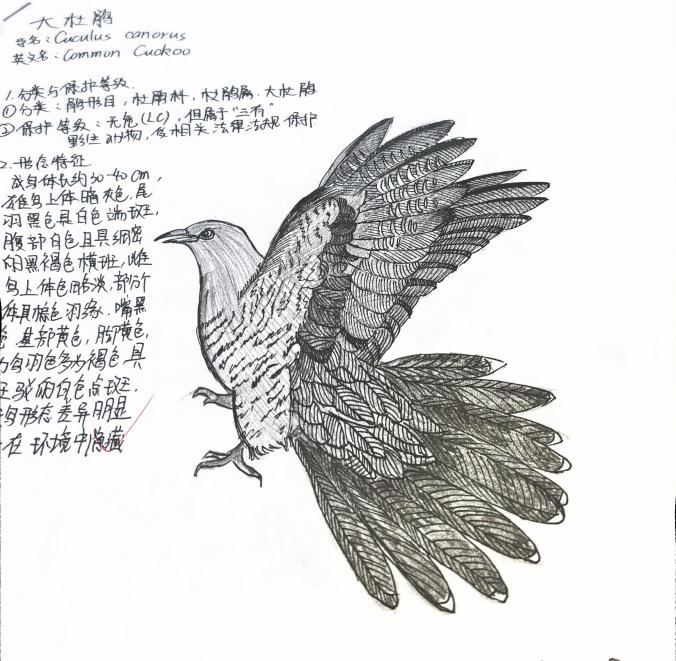 大杜鹃
学名：Cuculus canorus
英文名：Common Cuckoo
1.分类与保护等级
①分类：鹃形目，杜鹃科，杜鹃属，大杜鹃
②保护等级：无危(LC)，但属于"三有"
野生动物，受相关法律法规保护
2.形态特征
成鸟体长约30-40cm，
雄鸟上体暗灰色，尾
羽黑色具白色端斑，
腹部白色且具细密
的黑褐色横斑，雌
鸟上体色略淡，部分
体具棕色羽缘．嘴黑
基部黄色，脚黄色，
鸟羽色多为褐色，具
驳的白色点斑．
鸟形态差异明显
在环境中隐藏